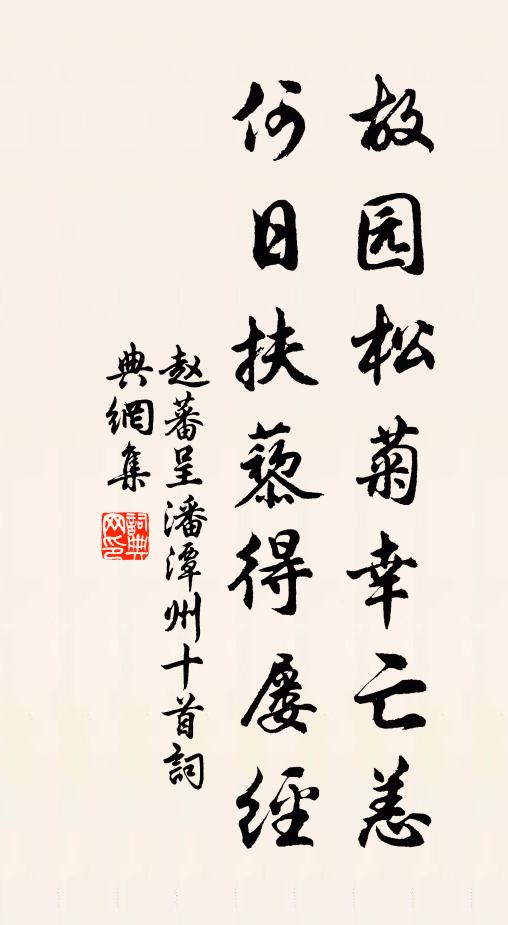 故园松菊幸亡恙
何日扶藜得屡经
赵蕃呈潘潭州十首詞
典網集
詞典
网印